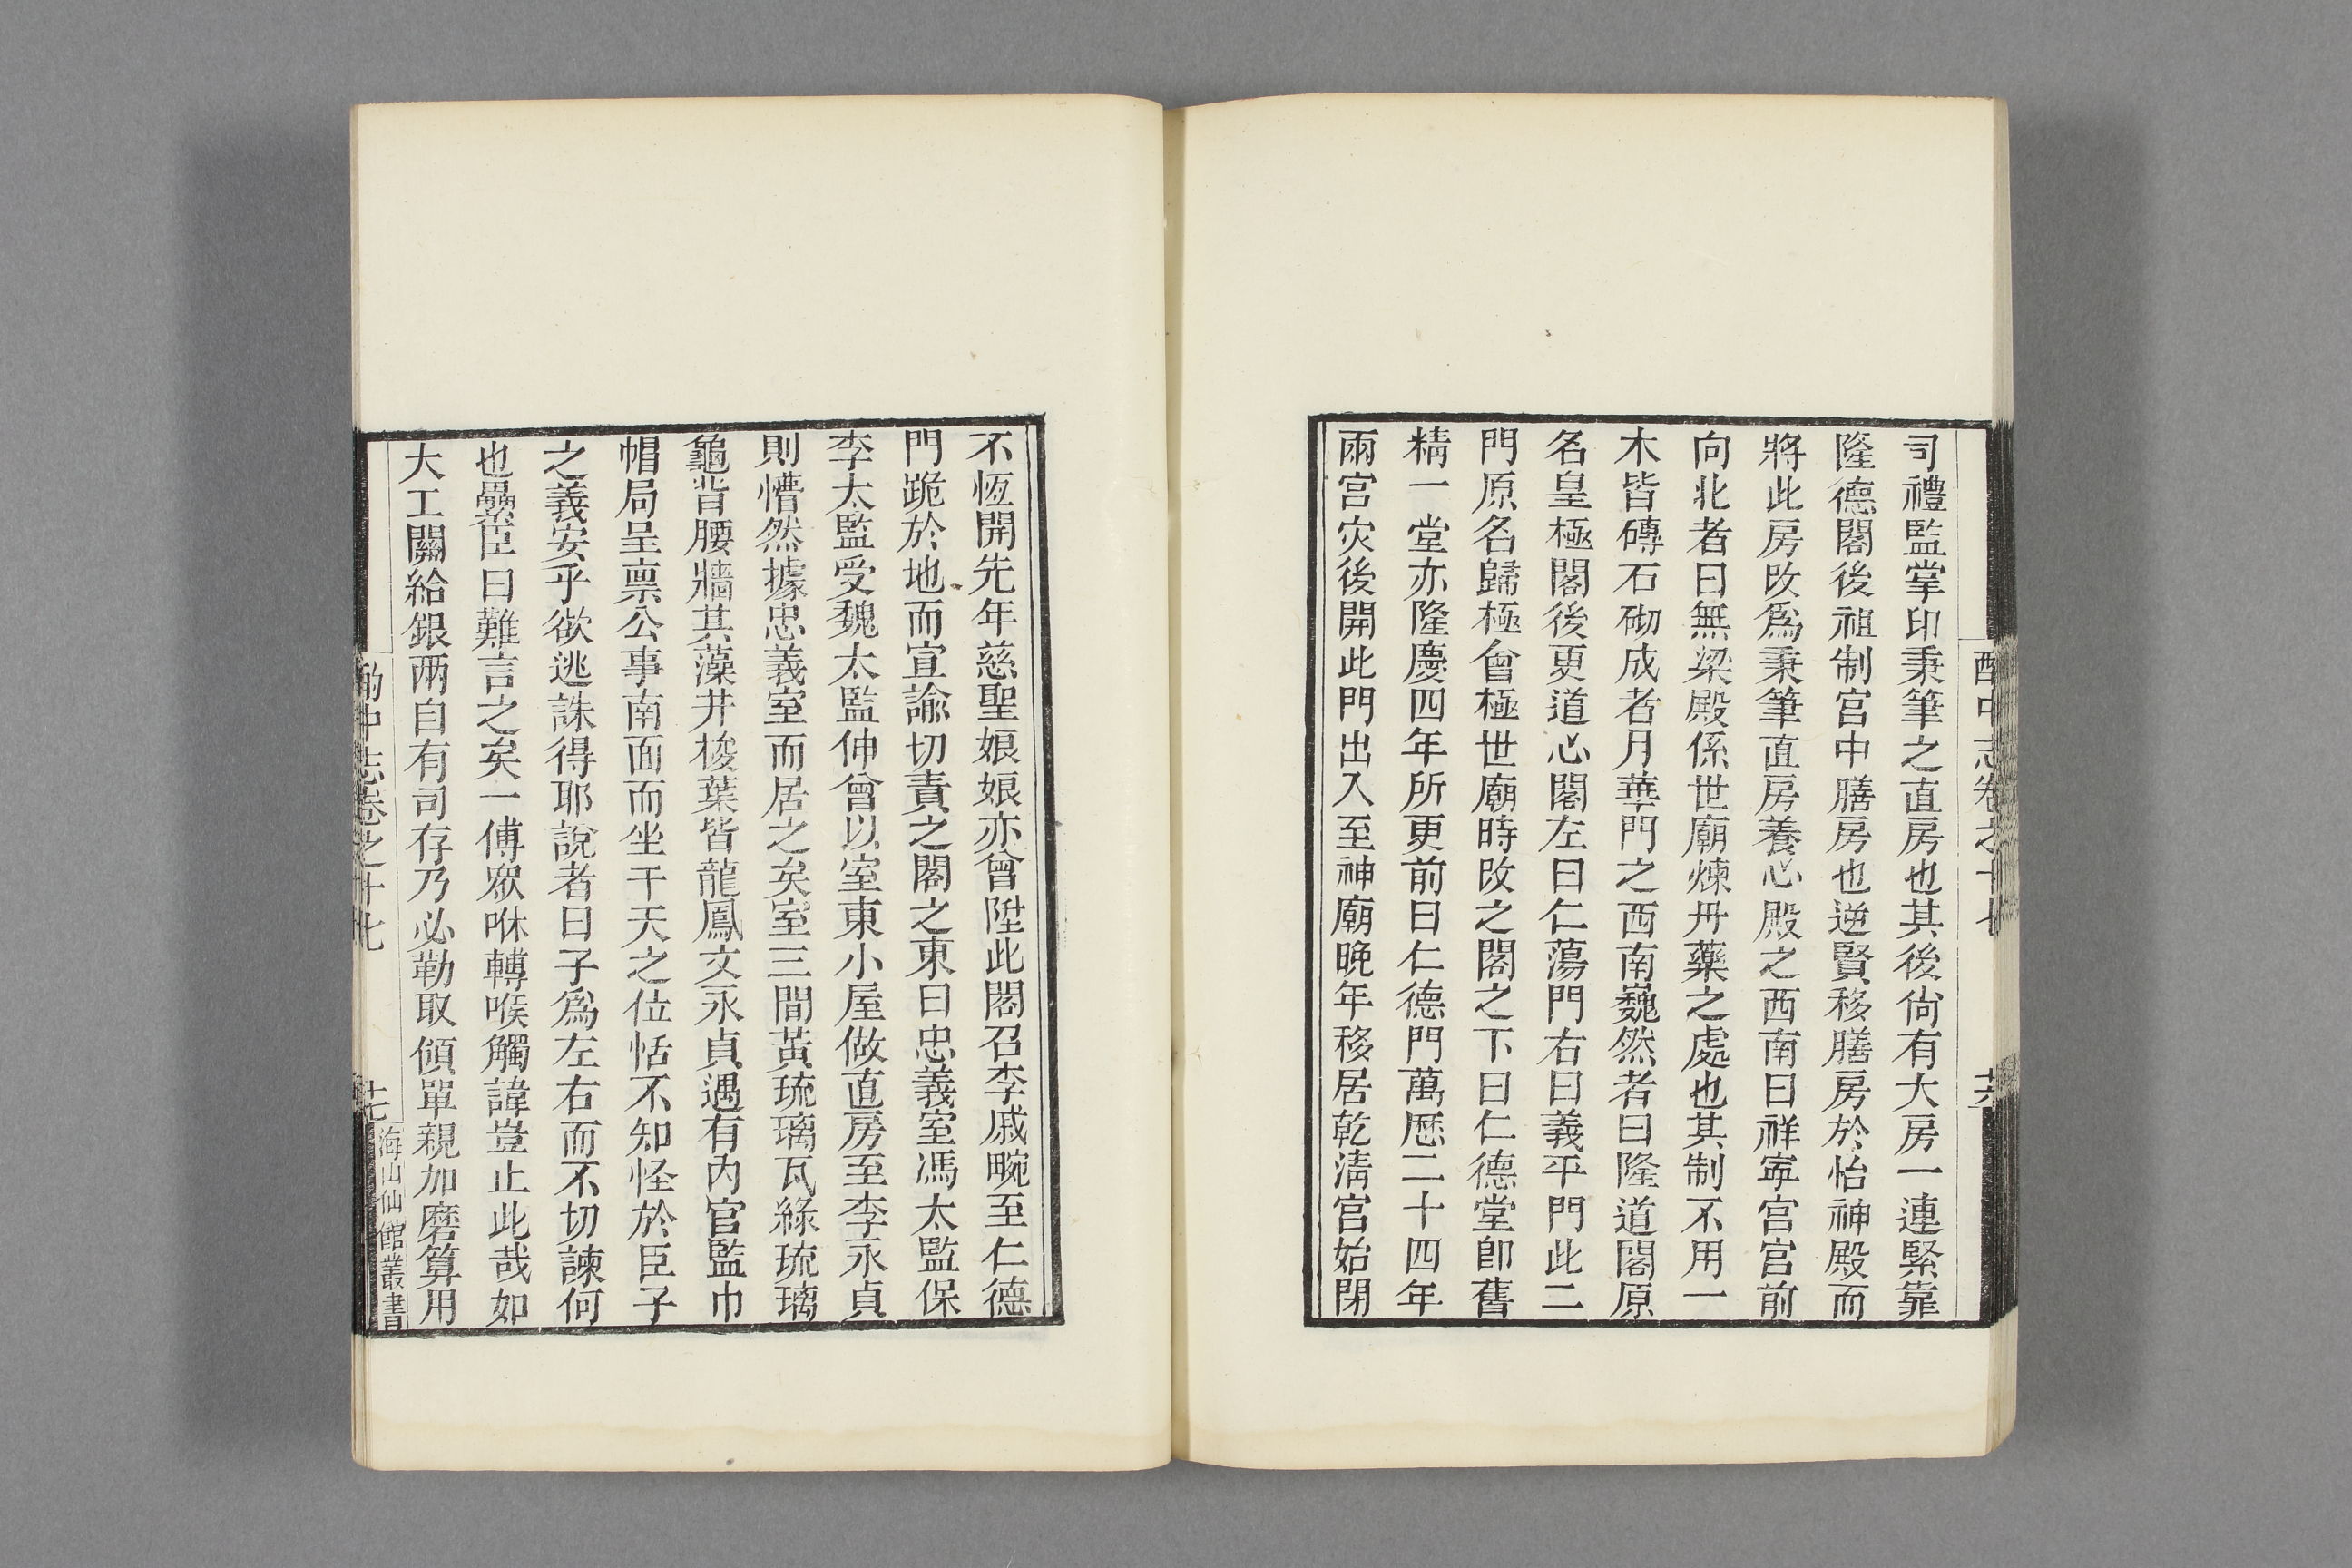 酌中志卷之十七
十六
司禮監掌印秉筆之直房也其後尚有大房一連緊靠
隆德閣後祖制宮中膳房也逆賢移膳房於怡神殿而
將此房改爲秉筆直房養心殿之西南曰祥寧宮宮前
向北者曰無梁殿係世廟煉丹藥之處也其制不用一
木皆磚石砌成者月華門之西南巍然者曰隆道閣原
名皇極閣後更道心閣左曰仁蕩門右曰義平門此二
門原名歸極會極世廟時改之閣之下曰仁德堂卽舊
精一堂亦隆慶四年所更前曰仁德門萬曆二十四年
兩宮灾後開此門出入至神廟晚年移居乾淸宮始閉
不恆開先年慈聖娘娘亦曾陞此閣召李戚畹至仁德
門跪於地而宣諭切責之閣之東曰忠義室馮太監保
李太監受魏太監伸曾以室東小屋做直房至李永貞
則懵然據忠義室而居之矣室三間黃琉璃瓦綠琉璃
龜背腰牆其藻井梭葉皆龍鳳文永貞遇有內官監巾
帽局呈禀公事南面而坐干天之位恬不知怪於臣子
之義安乎欲逃誅得耶說者曰子爲左右而不切諫何
也纍臣曰難言之矣一傅眾咻轉喉觸諱豈止此哉如
大工關給銀兩自有司存乃必勒取傾單親加磨算用
酌中志卷之十七
十七
海山仙館叢書